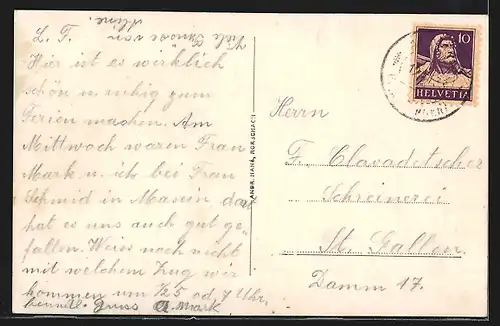 viele Grüsse von
Mine.
L. F.
Hier ist es wirklich
schön u. ruhig zum
Ferien machen. Am
Mittwoch waren Frau
Mark u. ich bei Frau
Schmid in Masein dort
hat es uns auch gut ge-
fallen. Weiss noch nicht
mit welchem Zug wir
kommen um ½5 od 7 Uhr.
freundl. Gruss A. Mark
ANDR. HANE, RORSCHACH
10
HELVETIA
Herrn
F. Clavadetscher
Schreinerei
St. Gallen.
Damm 17.